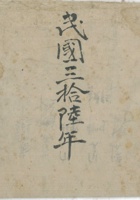 民國三拾陸年